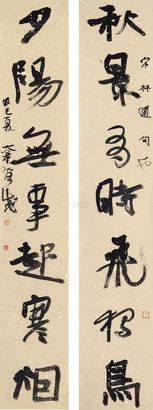 秋景有時飛獨鳥
宋林逋句也
夕陽無事起寒烟
癸巳夏